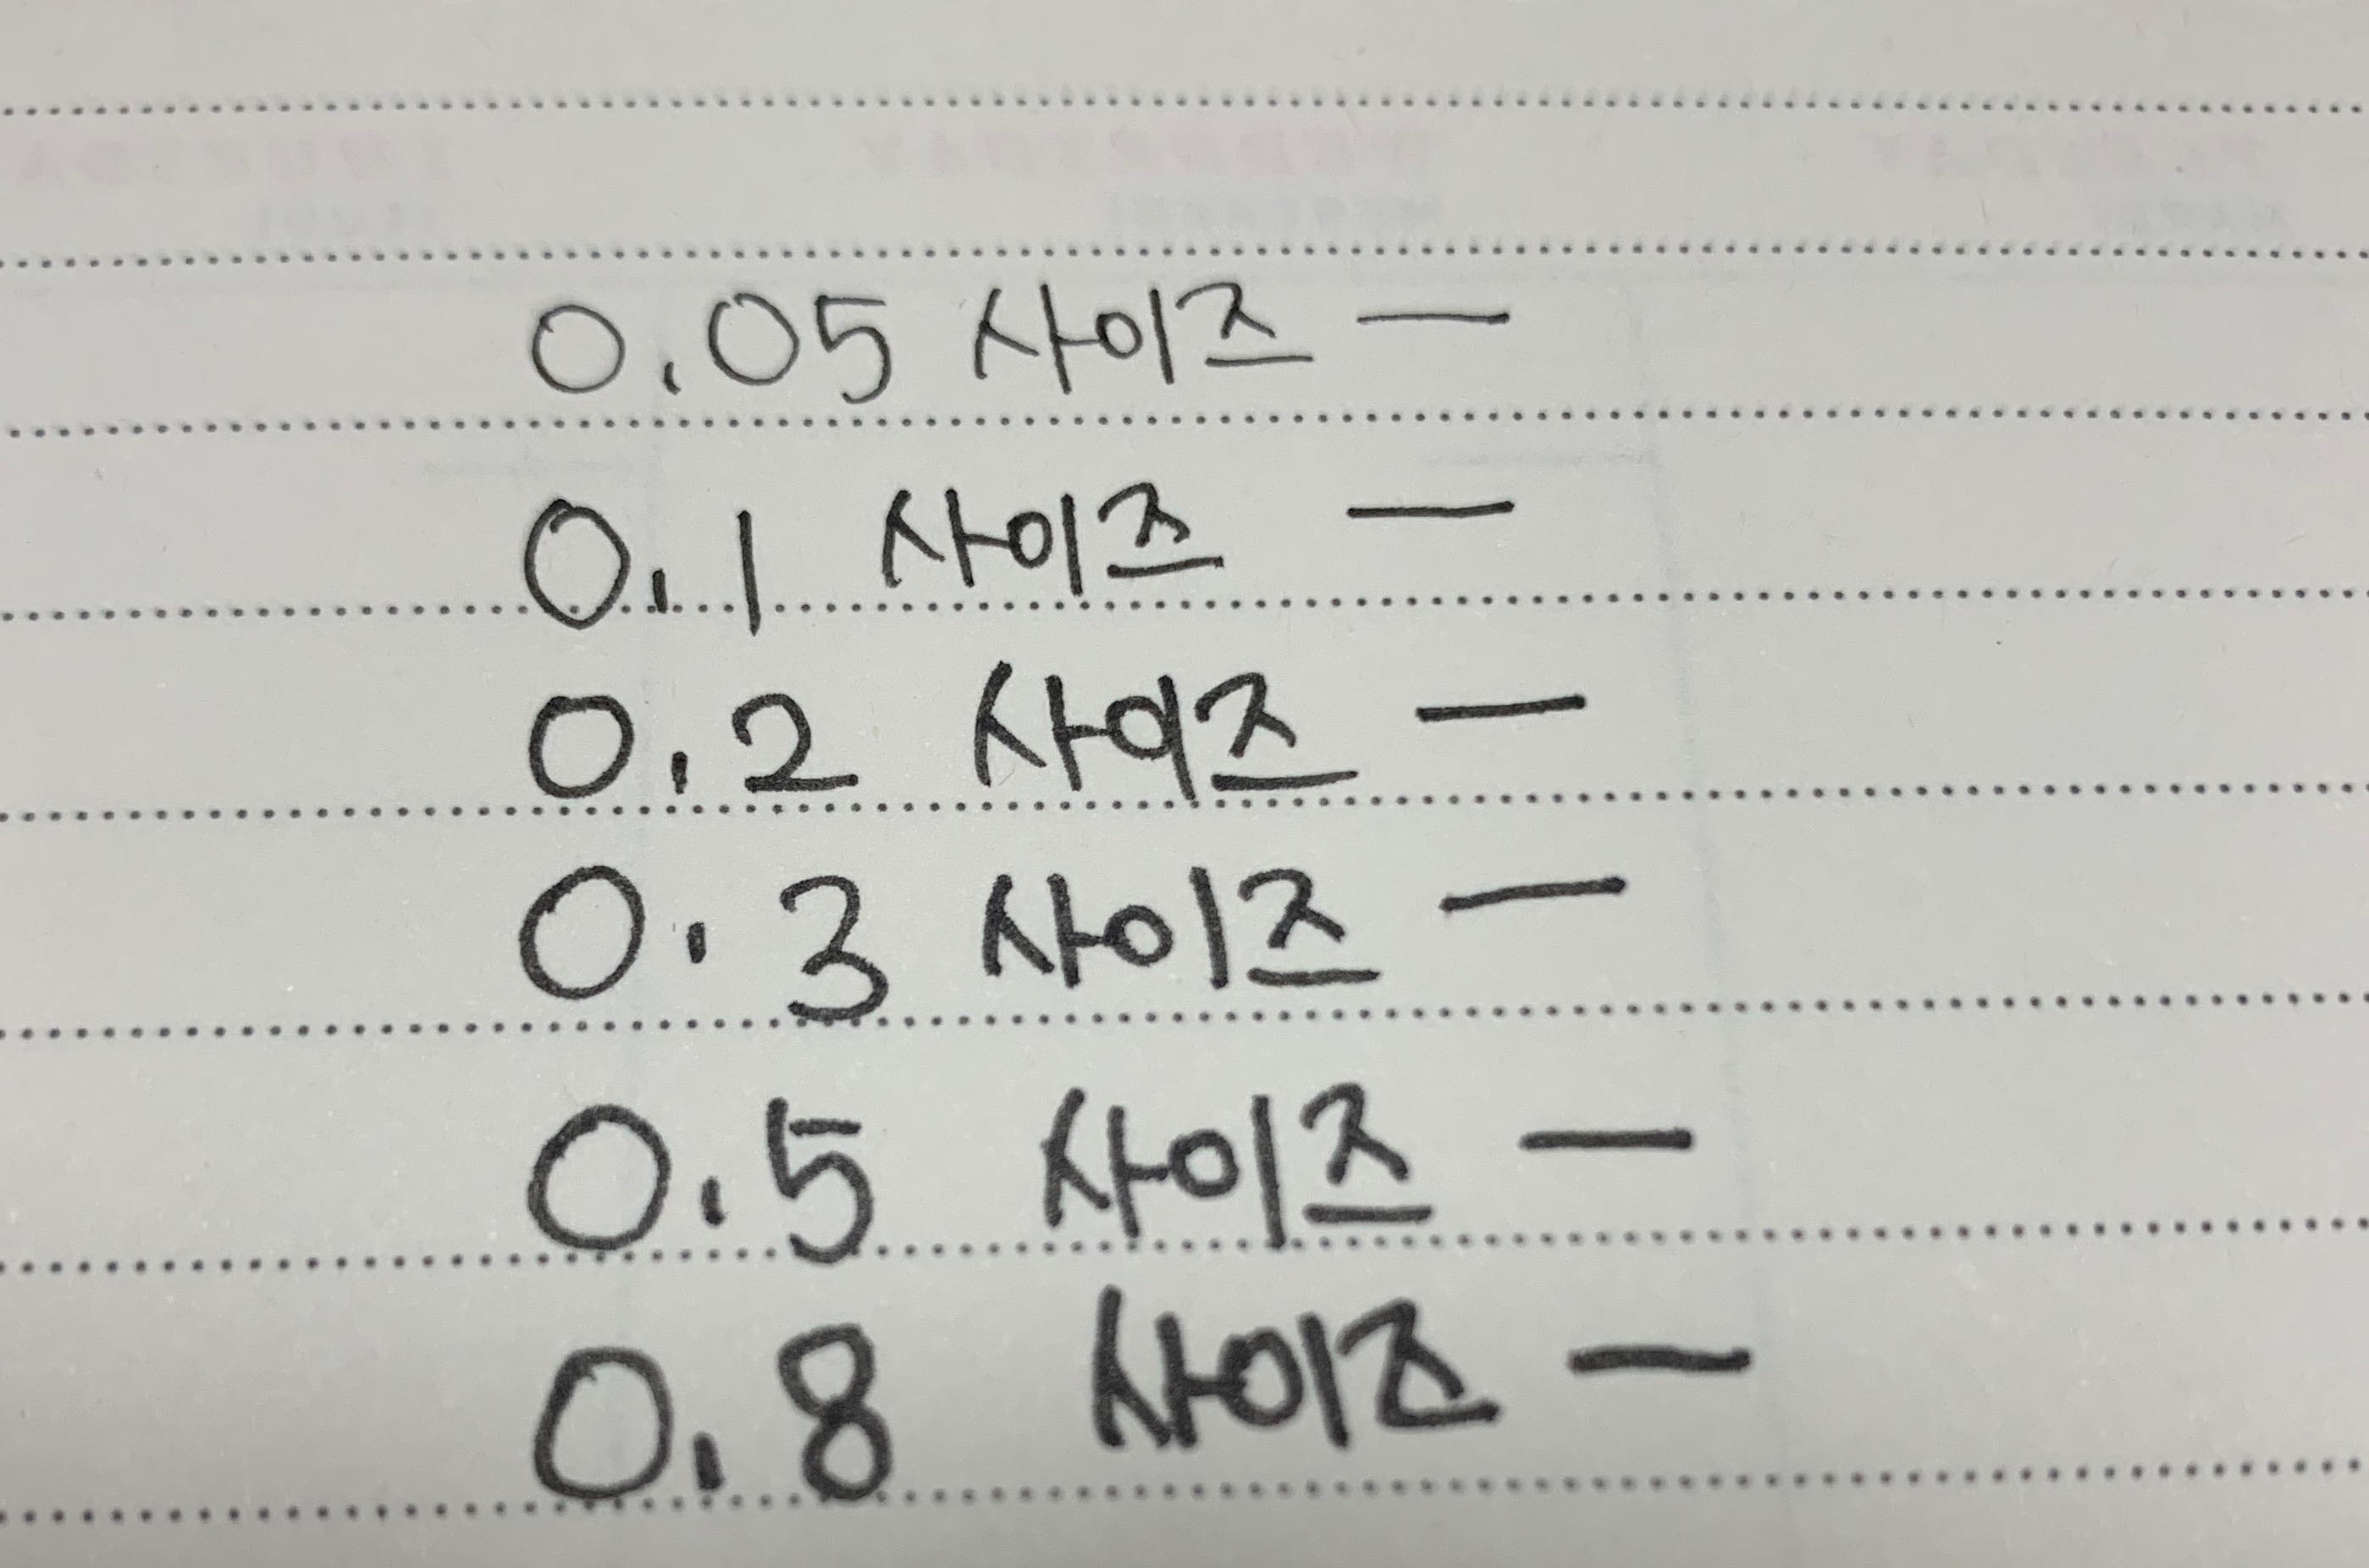 0.05 사이즈 —
0.1 사이즈 —
0.2 사이즈 —
0.3 사이즈 —
0.5 사이즈 —
0.8 사이즈 —